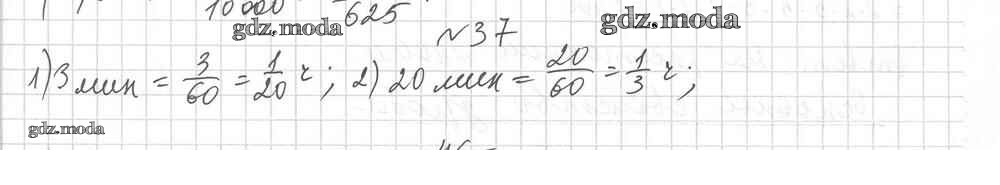 10000 625
gdz.moda gdz.moda
№37
1) 3 мин = 3/60 = 1/20 ч; 2) 20 мин = 20/60 = 1/3 ч;
gdz.moda